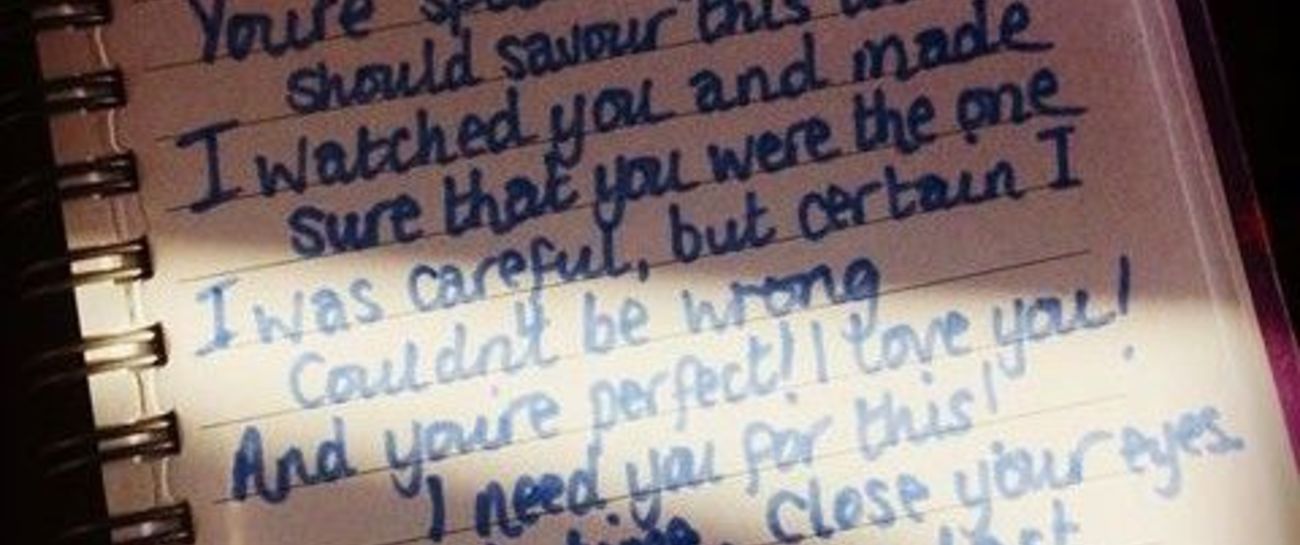 You're
should savour this
I watched you and made
sure that you were the one
I was careful, but certain I
Couldn't be wrong
And you're perfect! I love you!
I need you for this!
time. Close your eyes.
last